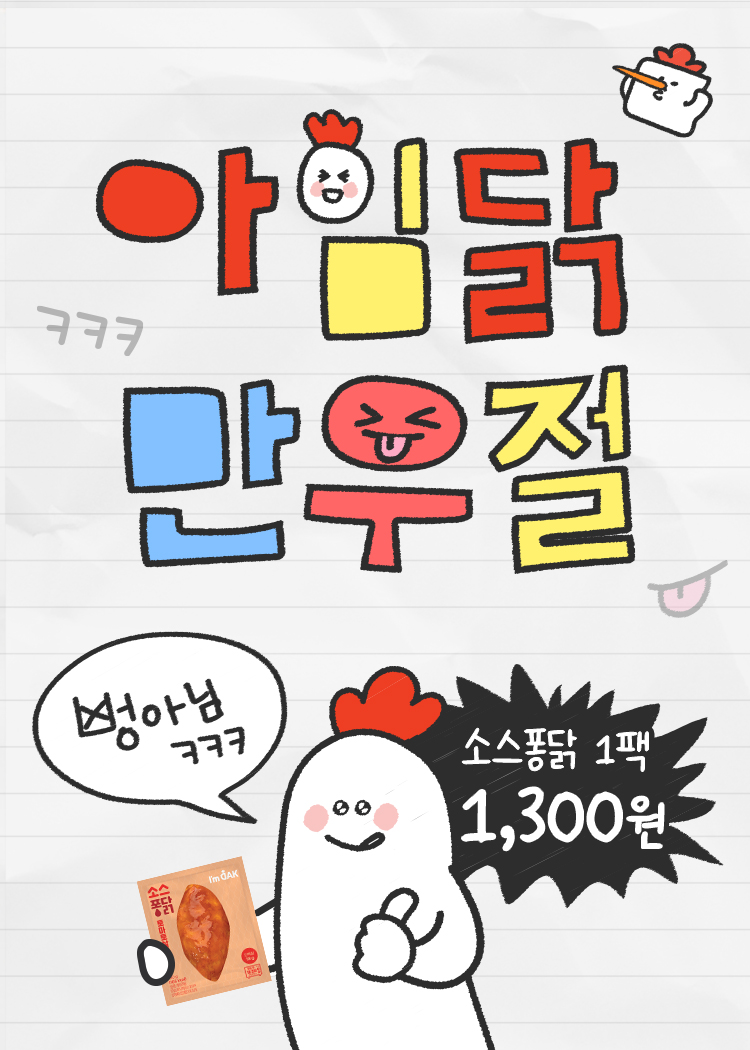 아임닭
ㅋㅋㅋ
만우절
뻥아님
ㅋㅋㅋ
소스퐁닭 1팩
1,300원
I'm DAK
소스
퐁닭